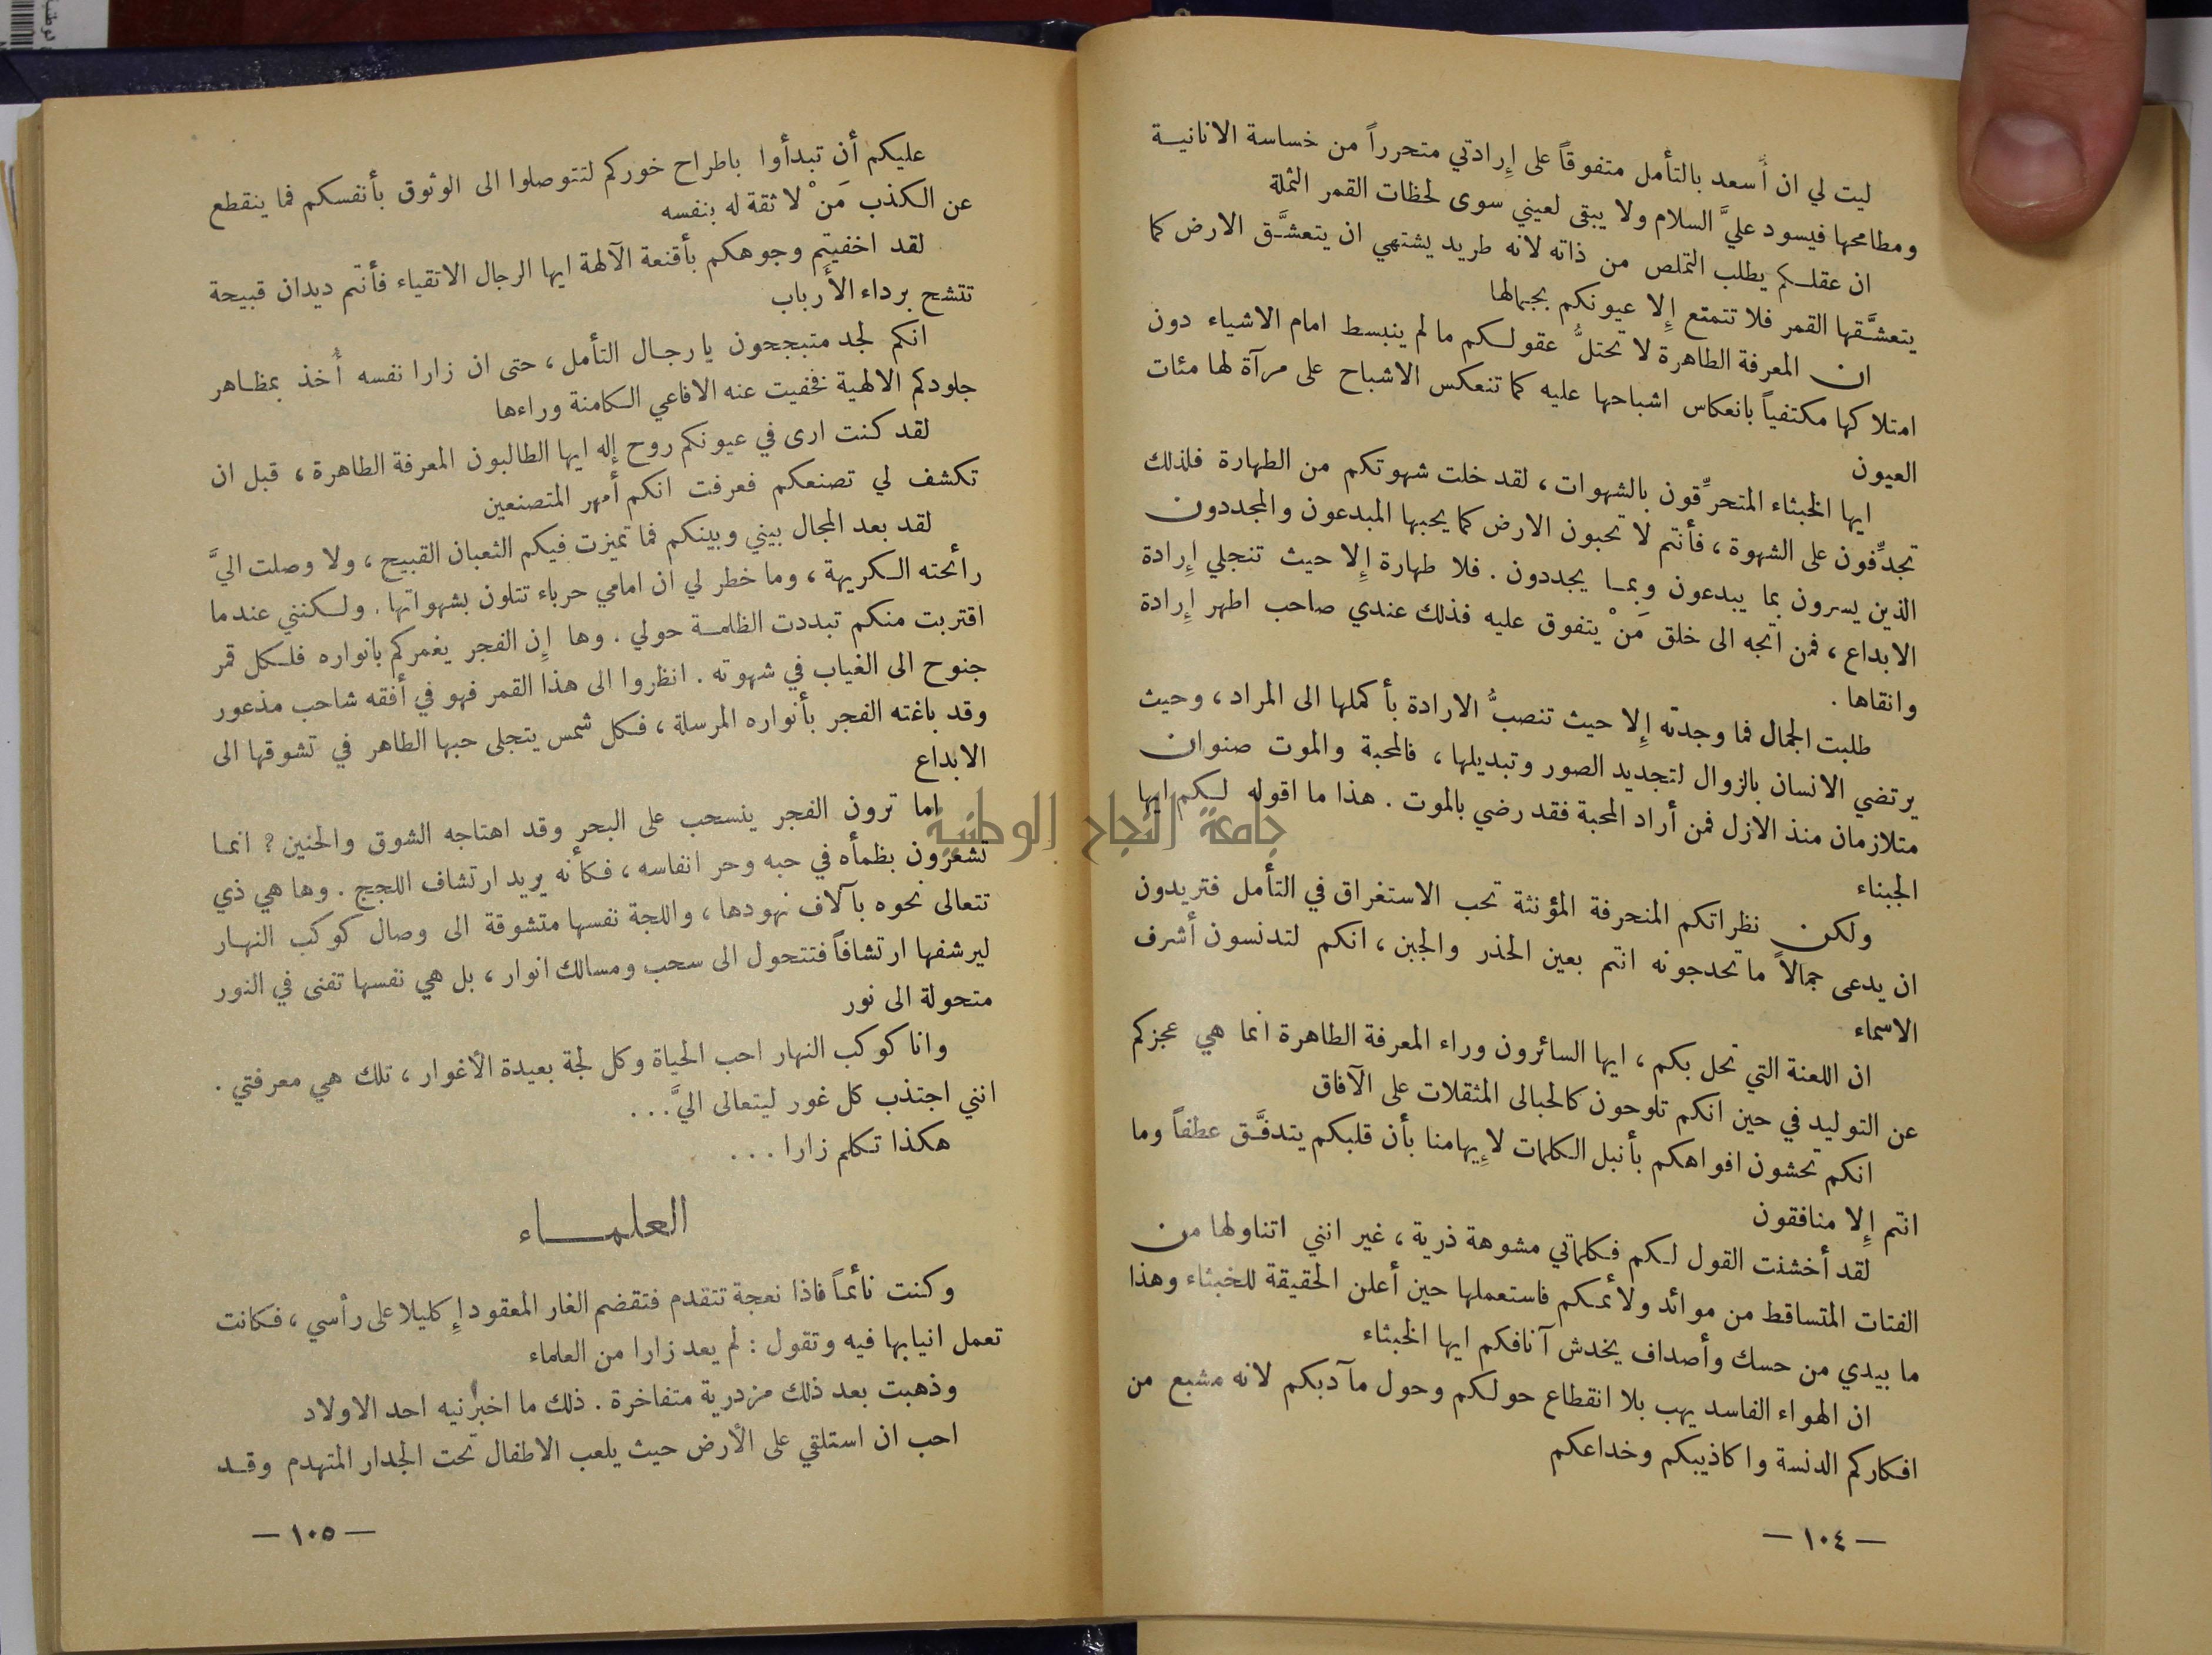 ليت لي ان أَسعد بالتأمل متفوقاً على إِرادتي متحرراً من خساسة الانانيـة
ومطامحها فيسود عليَّ السلام ولا يبقى لعيني سوى لحظات القمر الثملة
ان عقلكم يطلب التملص من ذاته لانه طريد يشتهي ان يتعشَّق الارض كما
يتعشَّقها القمر فلا تتمتع إِلا عيونكم بجمالها
ان المعرفة الطاهرة لا تحتلُّ عقولكم ما لم ينبسط امام الاشياء دون
امتلاكها مكتفياً بانعكاس اشباحها عليه كما تنعكس الاشباح على مرآة لها مئات
العيون
ايها الخبثاء المتحرِّقون بالشهوات، لقد خلت شهوتكم من الطهارة فلذلك
تجدِّفون على الشهوة، فأنتم لا تحبون الارض كما يحبها المبدعون والمجددون
الذين يسرون بما يبدعون وبما يجددون. فلا طهارة إِلا حيث تنجلي إِرادة
الابداع، فمن اتجه الى خلق مَنْ يتفوق عليه فذلك عندي صاحب اطهر إِرادة
وانقاها.
طلبت الجمال فما وجدته إِلا حيث تنصبُّ الارادة بأكملها الى المراد، وحيث
يرتضي الانسان بالزوال لتجديد الصور وتبديلها، فالمحبة والموت صنوان
متلازمان منذ الازل فمن أراد المحبة فقد رضي بالموت. هذا ما اقوله لكم ايها
الجبناء
ولكن نظراتكم المنحرفة المؤنثة تحب الاستغراق في التأمل فتريدون
ان يدعى جمالاً ما تحدجونه انتم بعين الحذر والجبن، انكم لتدنسون أشرف
الاسماء
ان اللعنة التي تحل بكم، ايها السائرون وراء المعرفة الطاهرة انما هي عجزكم
عن التوليد في حين انكم تلوحون كالحبالى المثقلات على الآفاق
انكم تحشون افواهكم بأنبل الكلمات لإِيهامنا بأن قلبكم يتدفَّق عطفاً وما
انتم إِلا منافقون
لقد أخشنت القول لكم فكلماتي مشوهة ذرية، غير انني اتناولها من
الفتات المتساقط من موائد ولائمكم فاستعملها حين أعلن الحقيقة للخبثاء وهذا
ما بيدي من حسك وأصداف يخدش آنافكم ايها الخبثاء
ان الهواء الفاسد يهب بلا انقطاع حولكم وحول مآدبكم لانه مشبع من
افكاركم الدنسة واكاذيبكم وخداعكم
— ١٠٤ —
عليكم أن تبدأوا باطراح خوركم لتتوصلوا الى الوثوق بأنفسكم فما ينقطع
عن الكذب مَنْ لا ثقة له بنفسه
لقد اخفيتم وجوهكم بأقنعة الآلهة ايها الرجال الاتقياء فأنتم ديدان قبيحة
تتشح برداء الأَرباب
انكم لجد متبجحون يا رجال التأمل، حتى ان زارا نفسه أُخذ بمظاهر
جلودكم الالهية فخفيت عنه الافاعي الكامنة وراءها
لقد كنت ارى في عيونكم روح إله ايها الطالبون المعرفة الطاهرة، قبل ان
تكشف لي تصنعكم فعرفت انكم أمهر المتصنعين
لقد بعد المجال بيني وبينكم فما تميزت فيكم الثعبان القبيح، ولا وصلت اليَّ
رأئحته الكريهة، وما خطر لي ان امامي حرباء تتلون بشهواتها. ولكنني عندما
اقتربت منكم تبددت الظلمة حولي. وها إِن الفجر يغمركم بانواره فلكل قمر
جنوح الى الغياب في شهوته. انظروا الى هذا القمر فهو في أفقه شاحب مذعور
وقد باغته الفجر بأنواره المرسلة، فكل شمس يتجلى حبها الطاهر في تشوقها الى
الابداع
اما ترون الفجر ينسحب على البحر وقد اهتاجه الشوق والحنين؟ انما
تشعرون بظمأه في حبه وحر انفاسه، فكأنه يريد ارتشاف اللجج. وها هي ذي
تتعالى نحوه بآلاف نهودها، واللجة نفسها متشوقة الى وصال كوكب النهار
ليرشفها ارتشافاً فتتحول الى سحب ومسالك انوار، بل هي نفسها تفنى في النور
متحولة الى نور
وانا كوكب النهار احب الحياة وكل لجة بعيدة الأغوار، تلك هي معرفتي.
انني اجتذب كل غور ليتعالى اليَّ...
هكذا تكلم زارا...
العلمـــاء
وكنت نأئماً فاذا نعجة تتقدم فتقضم الغار المعقود إِكليلا على رأسي، فكانت
تعمل انيابها فيه وتقول: لم يعد زارا من العلماء
وذهبت بعد ذلك مزدرية متفاخرة. ذلك ما اخبرنيه احد الاولاد
احب ان استلقي على الأرض حيث يلعب الاطفال تحت الجدار المتهدم وقد
— ١٠٥ —
جامعة النجاح الوطنية